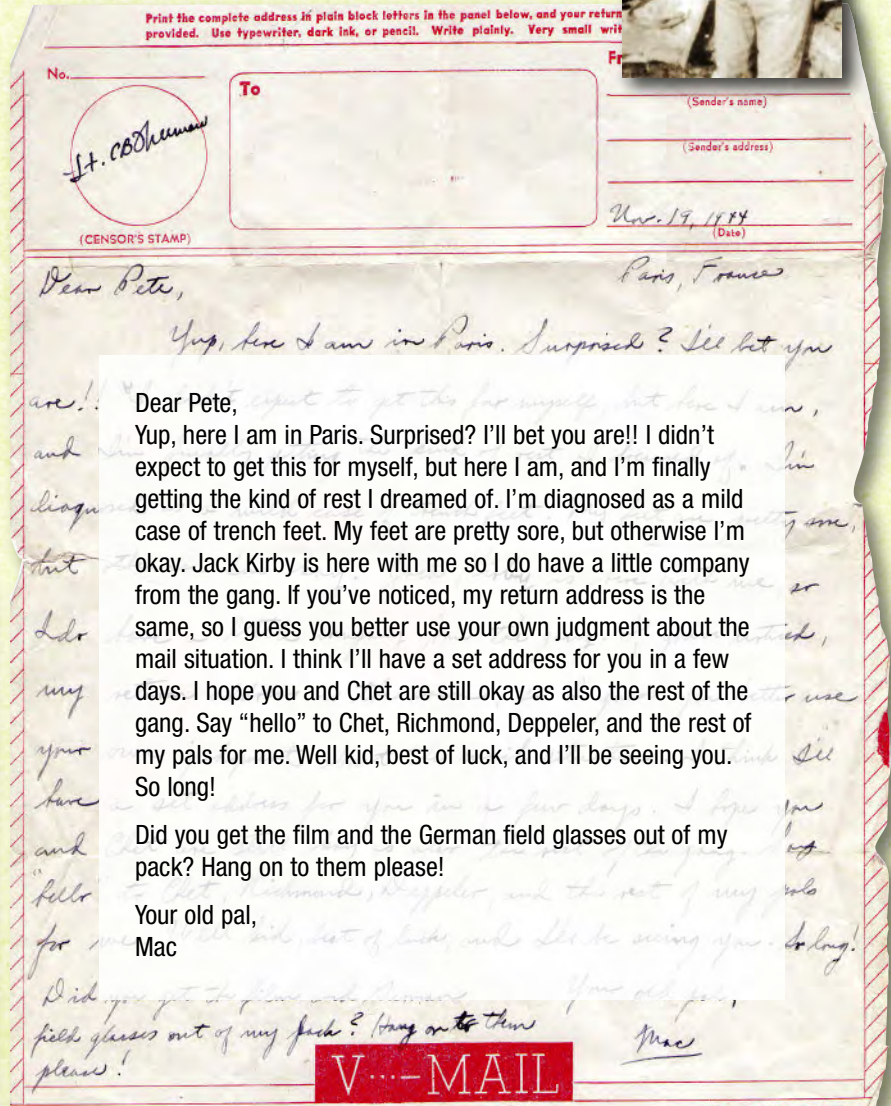 Print the complete address in plain block letters in the panel below, and your return
provided. Use typewriter, dark ink, or pencil. Write plainly. Very small
No.
To
(Sender's name)
(Sender's address)
Lt. CB Sherman
Nov. 19, 1944
(Date)
(CENSOR'S STAMP)
Dear Pete,
Paris, France
Yup, here I am in Paris. Surprised? I'll bet you
are!!
Dear Pete,
Yup, here I am in Paris. Surprised? I’ll bet you are!! I didn’t
expect to get this for myself, but here I am, and I’m finally
getting the kind of rest I dreamed of. I’m diagnosed as a mild
case of trench feet. My feet are pretty sore, but otherwise I’m
okay. Jack Kirby is here with me so I do have a little company
from the gang. If you’ve noticed, my return address is the
same, so I guess you better use your own judgment about the
mail situation. I think I’ll have a set address for you in a few
days. I hope you and Chet are still okay as also the rest of the
gang. Say “hello” to Chet, Richmond, Deppeler, and the rest of
my pals for me. Well kid, best of luck, and I’ll be seeing you.
So long!
Did you get the film and the German field glasses out of my
pack? Hang on to them please!
Your old pal,
Mac
Did you get the film and German
field glasses out of my pack? Hang on to them
please!
Your old pal,
Mac
V···–MAIL